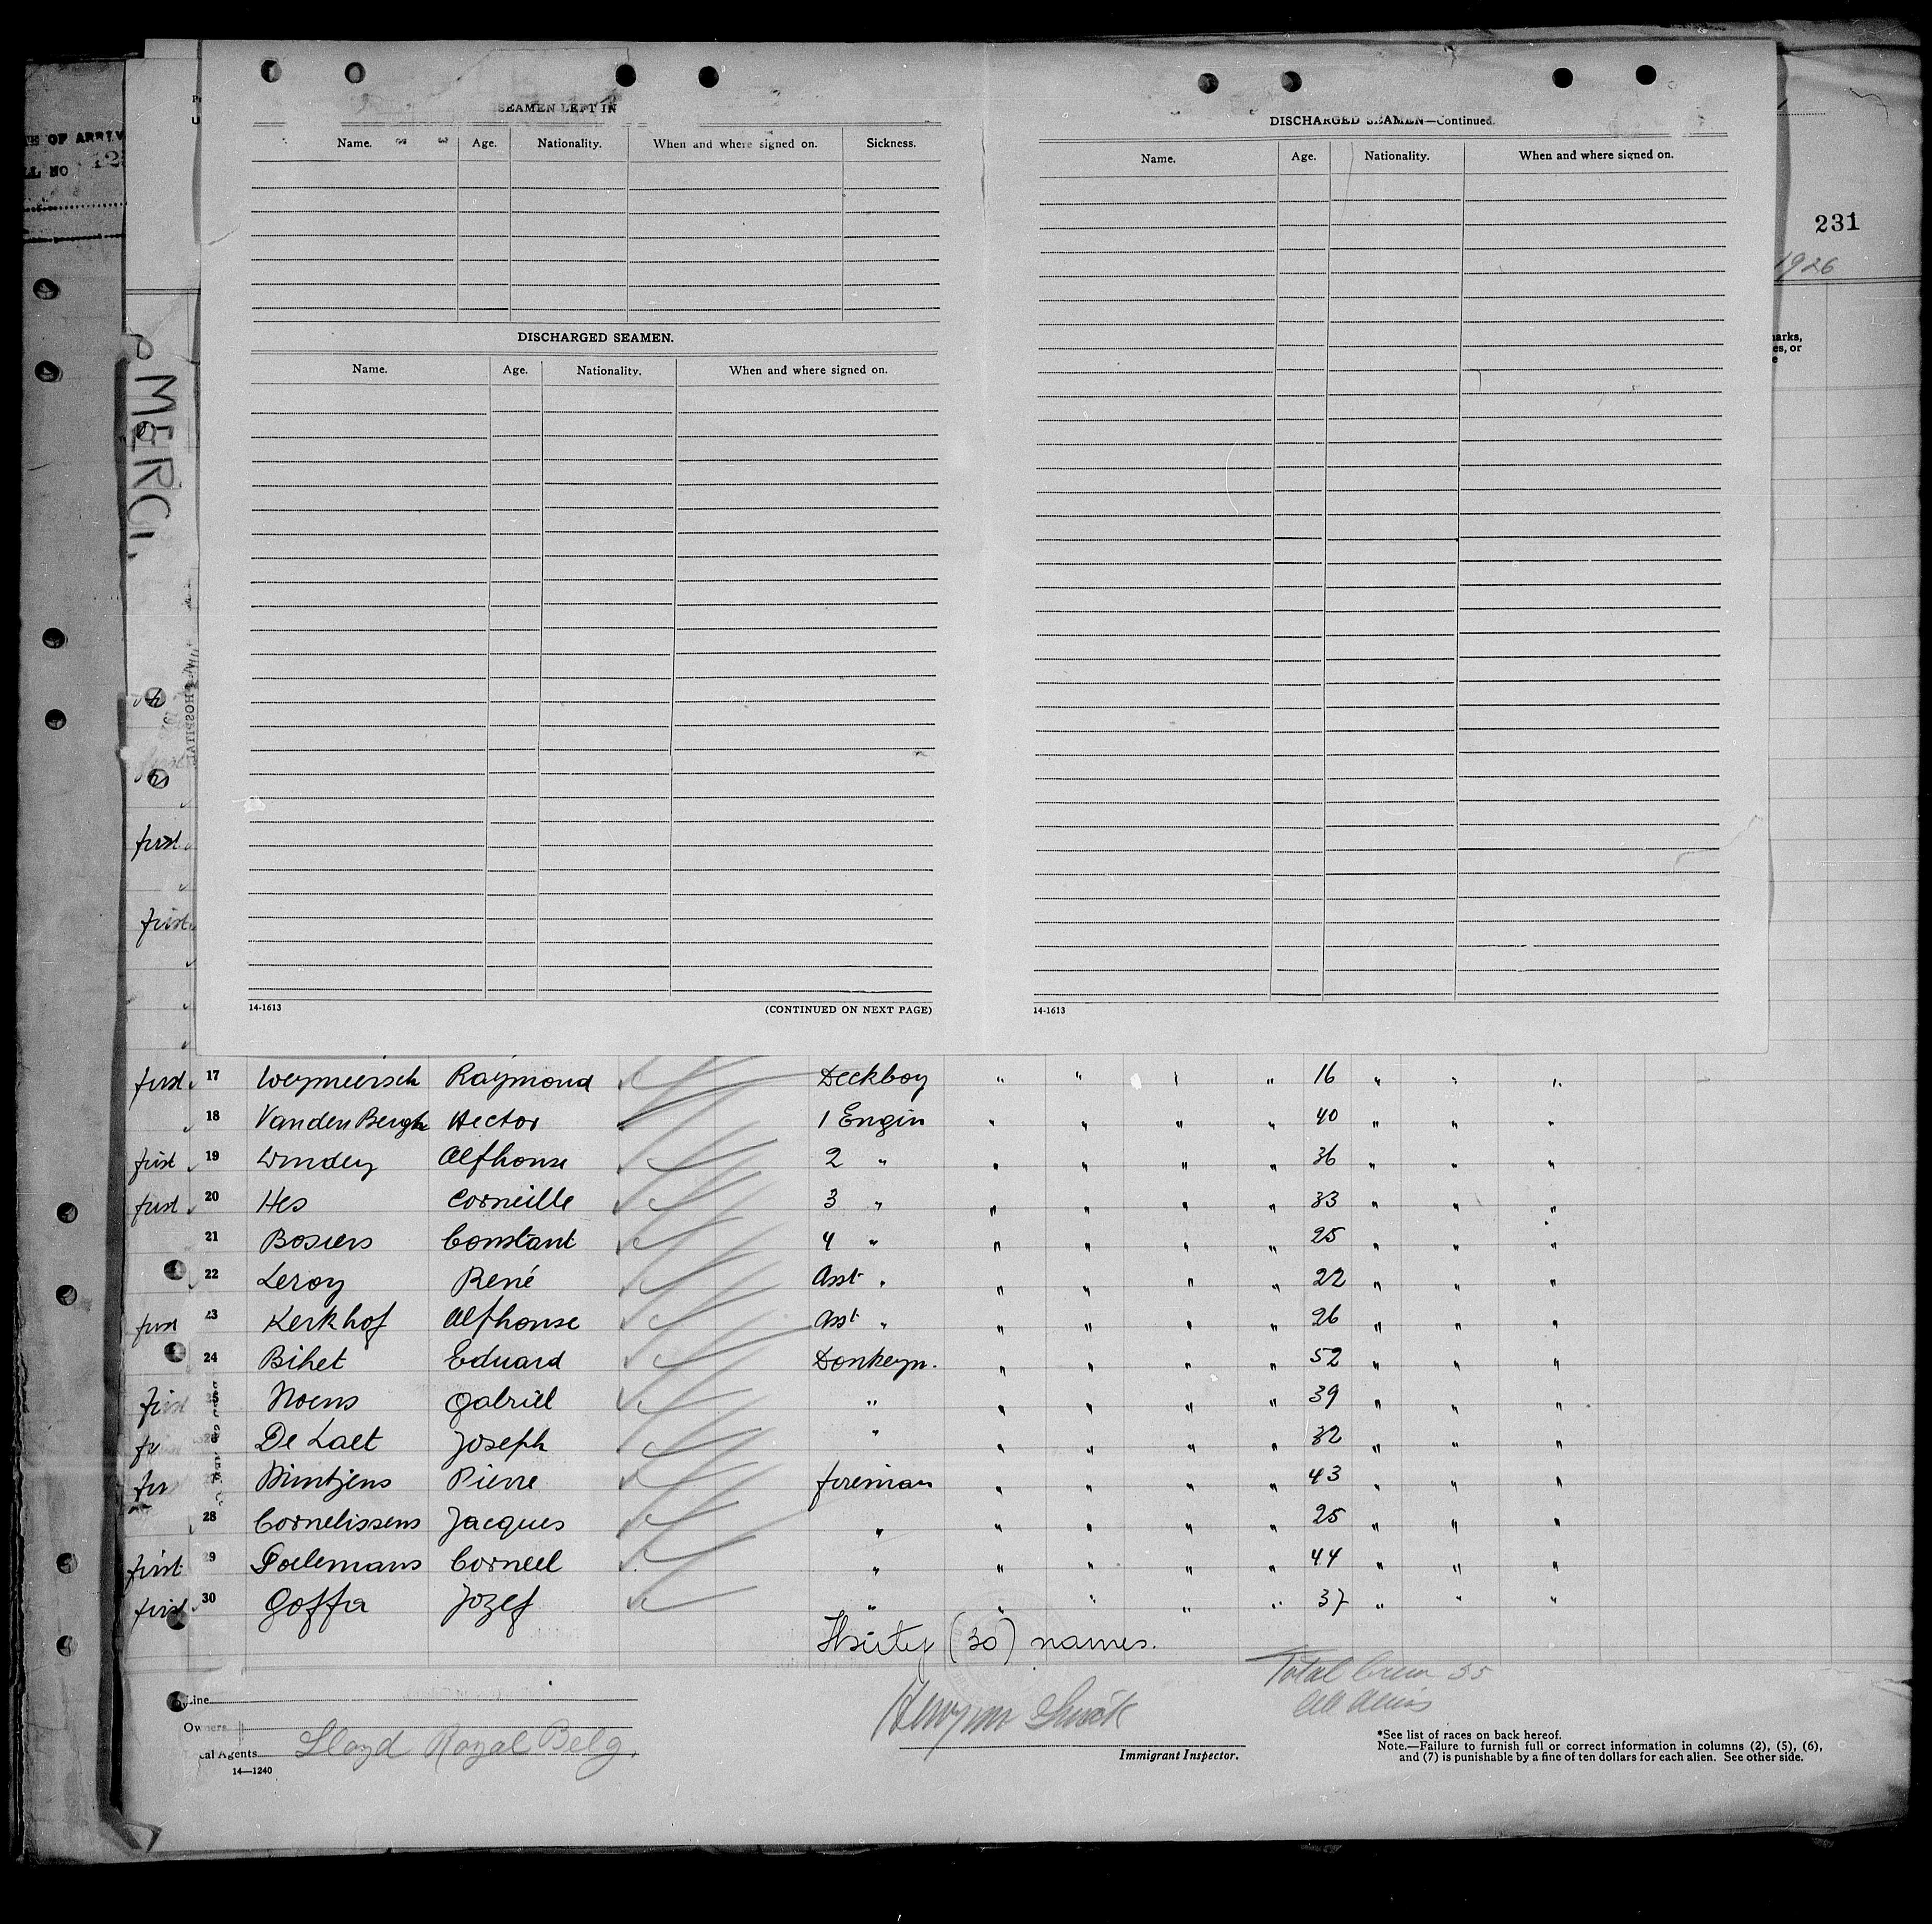 OF ARRIV
NO 12
231
1926
MERCI
HOSPITAL
SEAMEN LEFT IN
Name. Age. Nationality. When and where signed on. Sickness.
DISCHARGED SEAMEN.
Name. Age. Nationality. When and where signed on.
14-1613 (CONTINUED ON NEXT PAGE)
DISCHARGED SEAMEN—Continued.
Name. Age. Nationality. When and where signed on.
14-1613
arks,
es, or
e
first
first
first 17 Weymeersch Raymond Deckboy " " " " 16 " " "
18 Vanden Bergh Hector 1 Engin " " " " 40 " " "
first 19 Windey Alfhonse 2 " " " " " 36 " " "
first 20 Hes Corneille 3 " " " " " 33 " " "
21 Bosiers Constant 4 " " " " " 25 " " "
22 Leroy René Asst. " " " " " 22 " " "
first 23 Kerkhof Alfhonse Asst. " " " " " 26 " " "
24 Bihet Eduard Donkeym. " " " " 52 " " "
first 25 Noens Gabriel " " " " " 39 " " "
26 De Laet Joseph " " " " " 32 " " "
Mintjens Pierre fireman " " " " 43 " " "
28 Cornelissens Jacques " " " " " 25 " " "
first 29 Poelemans Corneel " " " " " 44 " " "
first 30 Goffa Jozef " " " " " 37 " " "
Thirty (30) names.
Total Crew 35
All Aliens
Line
Owners
cal Agents Lloyd Royal Belg.
14—1240
Immigrant Inspector.
*See list of races on back hereof.
Note.—Failure to furnish full or correct information in columns (2), (5), (6),
and (7) is punishable by a fine of ten dollars for each alien. See other side.